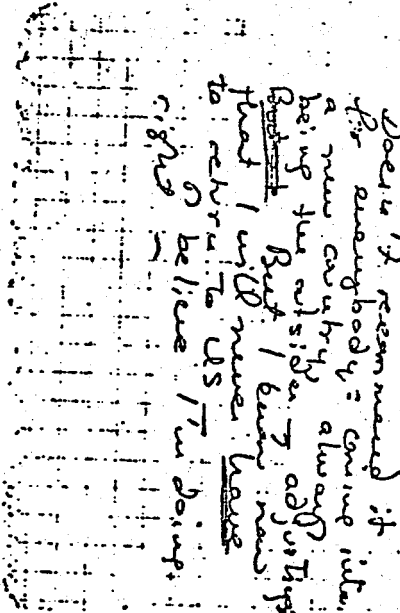 Doesn't recommend it
for everybody = coming into
a new country always
being the outsider & adjusting
But But I know now
that I will never have
to return to US I'm doing
right I believe